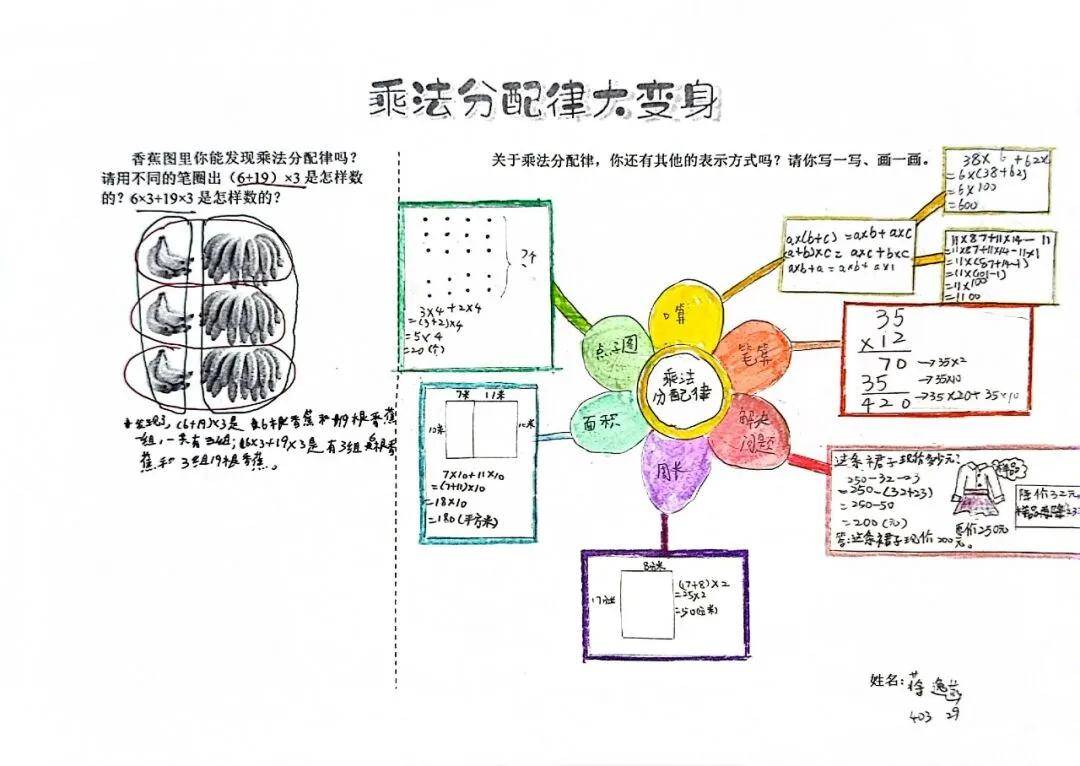 乘法分配律大变身
香蕉图里你能发现乘法分配律吗?
请用不同的笔圈出(6+19)×3是怎样数
的?6×3+19×3是怎样数的?
(6+19)×3是
一组,一共有三组;6×3+19×3是有3组
蕉和3组19根香蕉。
关于乘法分配律,你还有其他的表示方式吗?请你写一写、画一画。
3×4+2×4
=(3+2)×4
=5×4
=20(个)
7米 11米
10米
7×10+11×10
=(7+11)×10
=18×10
=180(平方米)
点子图
口算
笔算
面积
周长
解决
问题
乘法
分配律
a×(b+c)=a×b+a×c
(a+b)×c=a×c+b×c
a×b+a=a×b+a×1
38×6+62×
=6×(38+62)
=6×100
=600
11×87+11×14-11
=11×87+11×14-11×1
=11×(87+14-1)
=11×(101-1)
=11×100
=1100
35
×12
70→35×2
35→35×10
420→35×20+35×10
这条裙子现价多少元?
250-32-23
=250-(32+23)
=250-50
=200(元)
答:这条裙子现价200元。
样品
原价250元
降价32元
样品再降23
8分米
17分米
(17+8)×2
=25×2
=50(分米)
姓名:
403 29